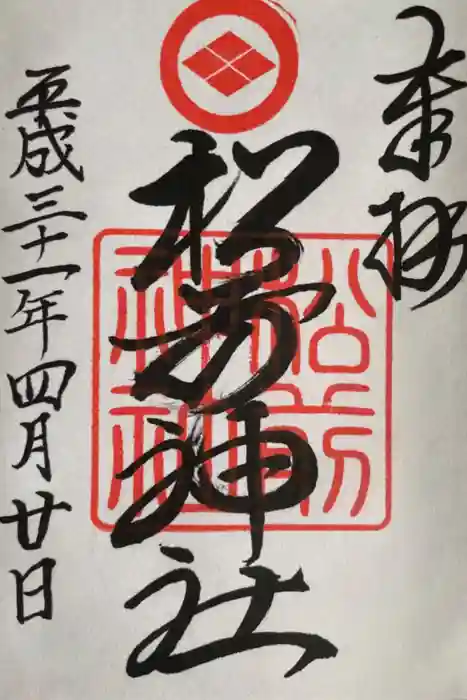 奉拝
松前神社
松前神社
平成三十一年四月廿日